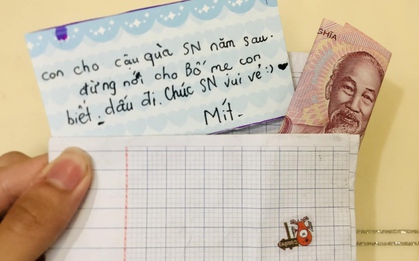 con cho cậu quà SN năm sau.
đừng nói cho Bố mẹ con
biết. dấu đi. Chúc SN vui vẻ :) ♥
Mít-
GHĨA